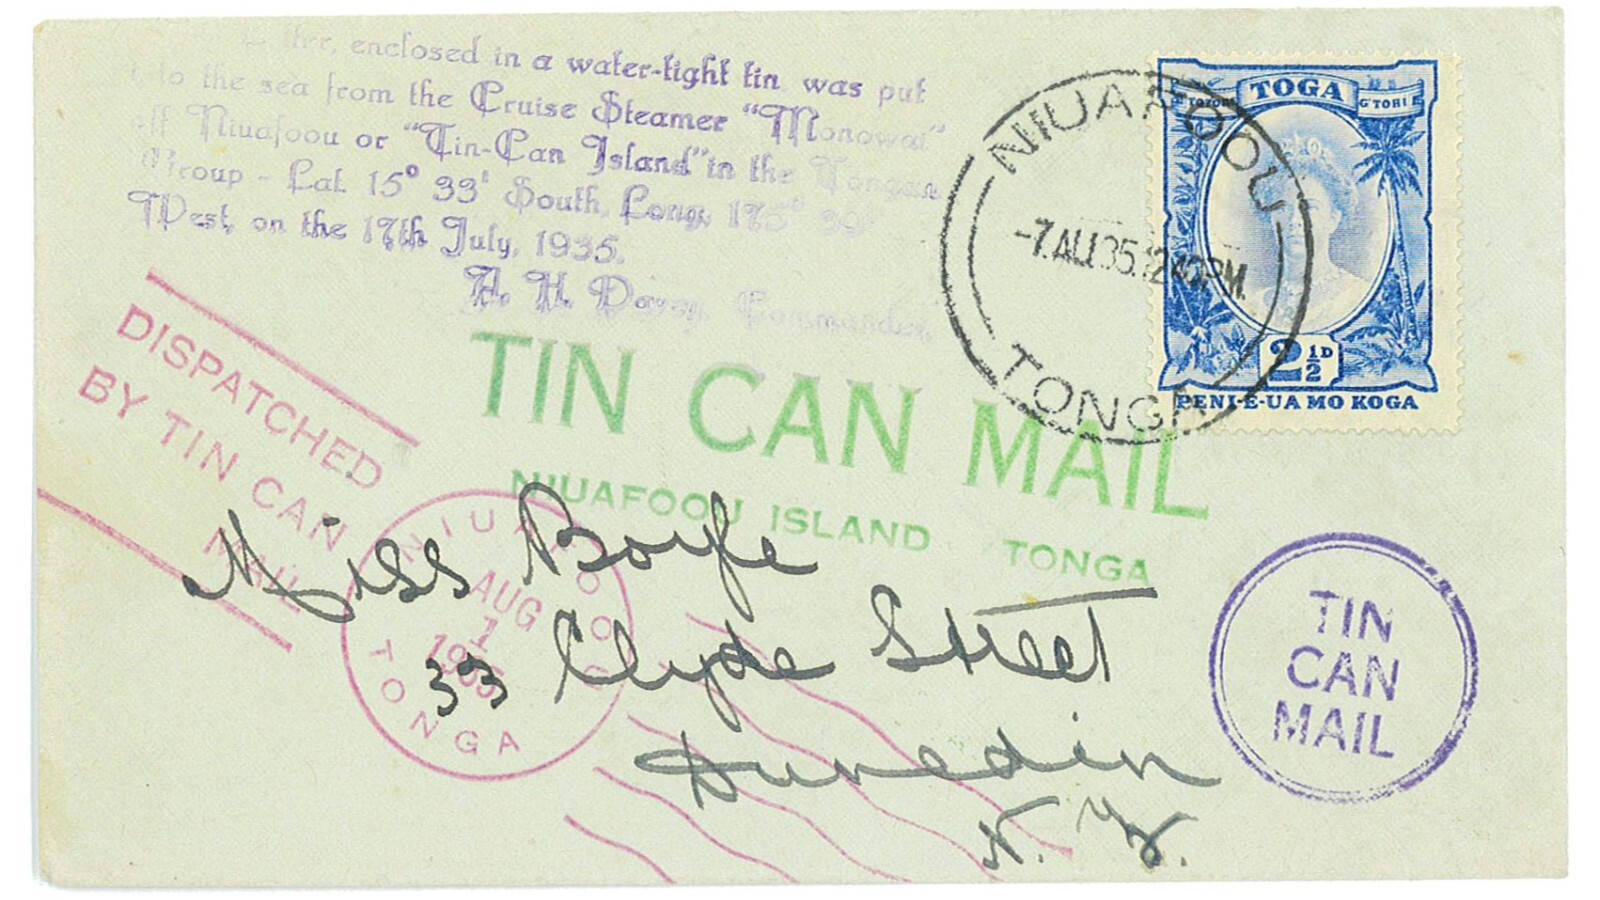 enclosed in a water-tight tin was put
the sea from the Cruise Steamer "Monowai"
Niuafoou or "Tin-Can Island" in the Tongan
Group - Lat. 15° 33' South, Long.
West, on the 17th July, 1935.
A. H. Davey, Commander.
TOGA
NIUAFOOU
-7.AU.35.12 40PM
TONGA
2½D
PENI-E-UA MO KOGA
DISPATCHED
BY TIN CAN
MAIL
TIN CAN MAIL
NIUAFOOU ISLAND TONGA
NIUAFOOU
AUG
1
TONGA
Miss Boyle
33 Clyde Street
Dunedin
N. Z.
TIN
CAN
MAIL